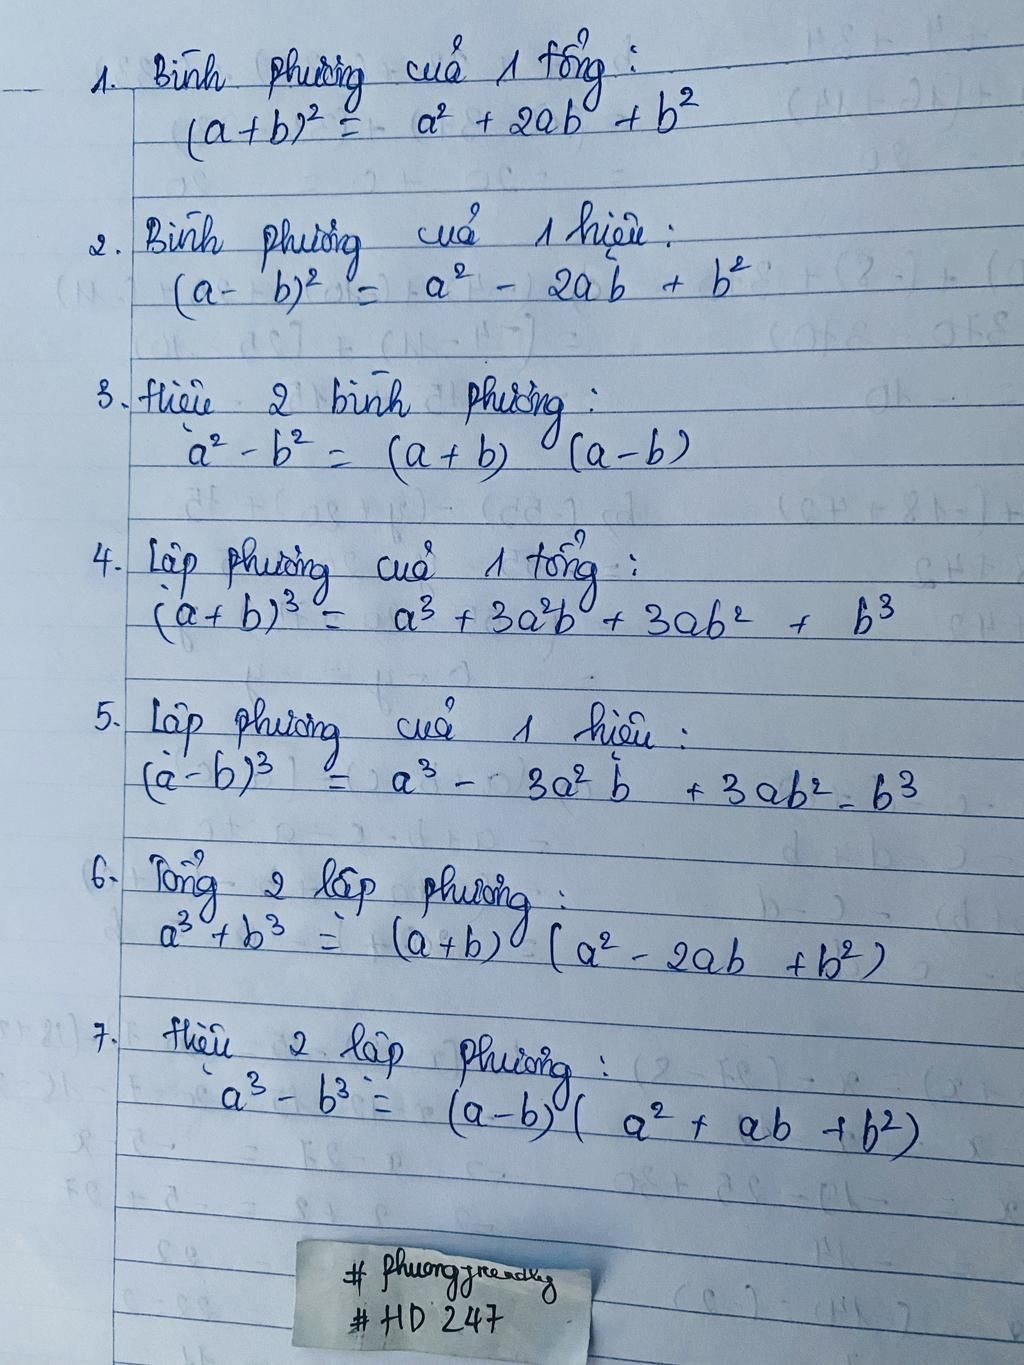 1. Bình phương của 1 tổng:
(a+b)² = a² + 2ab + b²
2. Bình phương của 1 hiệu:
(a- b)² = a² - 2ab + b²
3. Hiệu 2 bình phương:
a² - b² = (a + b) (a - b)
4. Lập phương của 1 tổng:
(a + b)³ = a³ + 3a²b + 3ab² + b³
5. Lập phương của 1 hiệu:
(a - b)³ = a³ - 3a² b + 3ab² - b³
6. Tổng 2 lập phương:
a³ + b³ = (a+b) (a² - 2ab + b²)
7. Hiệu 2 lập phương:
a³ - b³ = (a-b) ( a² + ab + b²)
# phuongfriendly
# HD 247